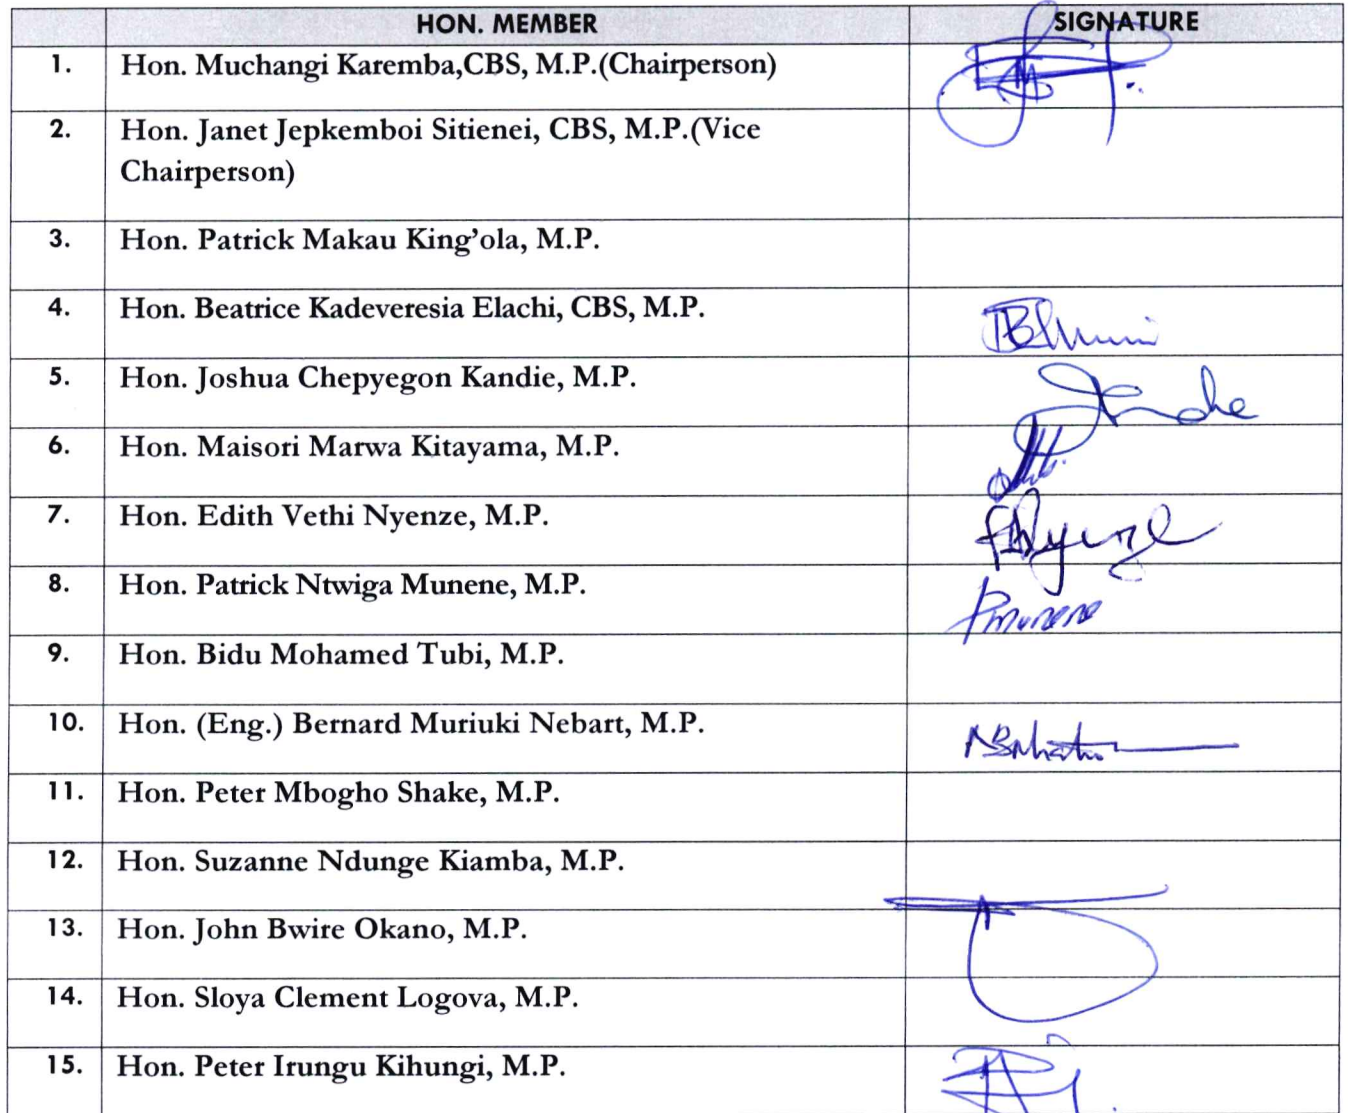 HON. MEMBER SIGNATURE
1. Hon. Muchangi Karemba,CBS, M.P.(Chairperson)
2. Hon. Janet Jepkemboi Sitienei, CBS, M.P.(Vice
Chairperson)
3. Hon. Patrick Makau King’ola, M.P.
4. Hon. Beatrice Kadeveresia Elachi, CBS, M.P.
5. Hon. Joshua Chepyegon Kandie, M.P.
6. Hon. Maisori Marwa Kitayama, M.P.
7. Hon. Edith Vethi Nyenze, M.P.
8. Hon. Patrick Ntwiga Munene, M.P. Pmunene
9. Hon. Bidu Mohamed Tubi, M.P.
10. Hon. (Eng.) Bernard Muriuki Nebart, M.P.
11. Hon. Peter Mbogho Shake, M.P.
12. Hon. Suzanne Ndunge Kiamba, M.P.
13. Hon. John Bwire Okano, M.P.
14. Hon. Sloya Clement Logova, M.P.
15. Hon. Peter Irungu Kihungi, M.P.